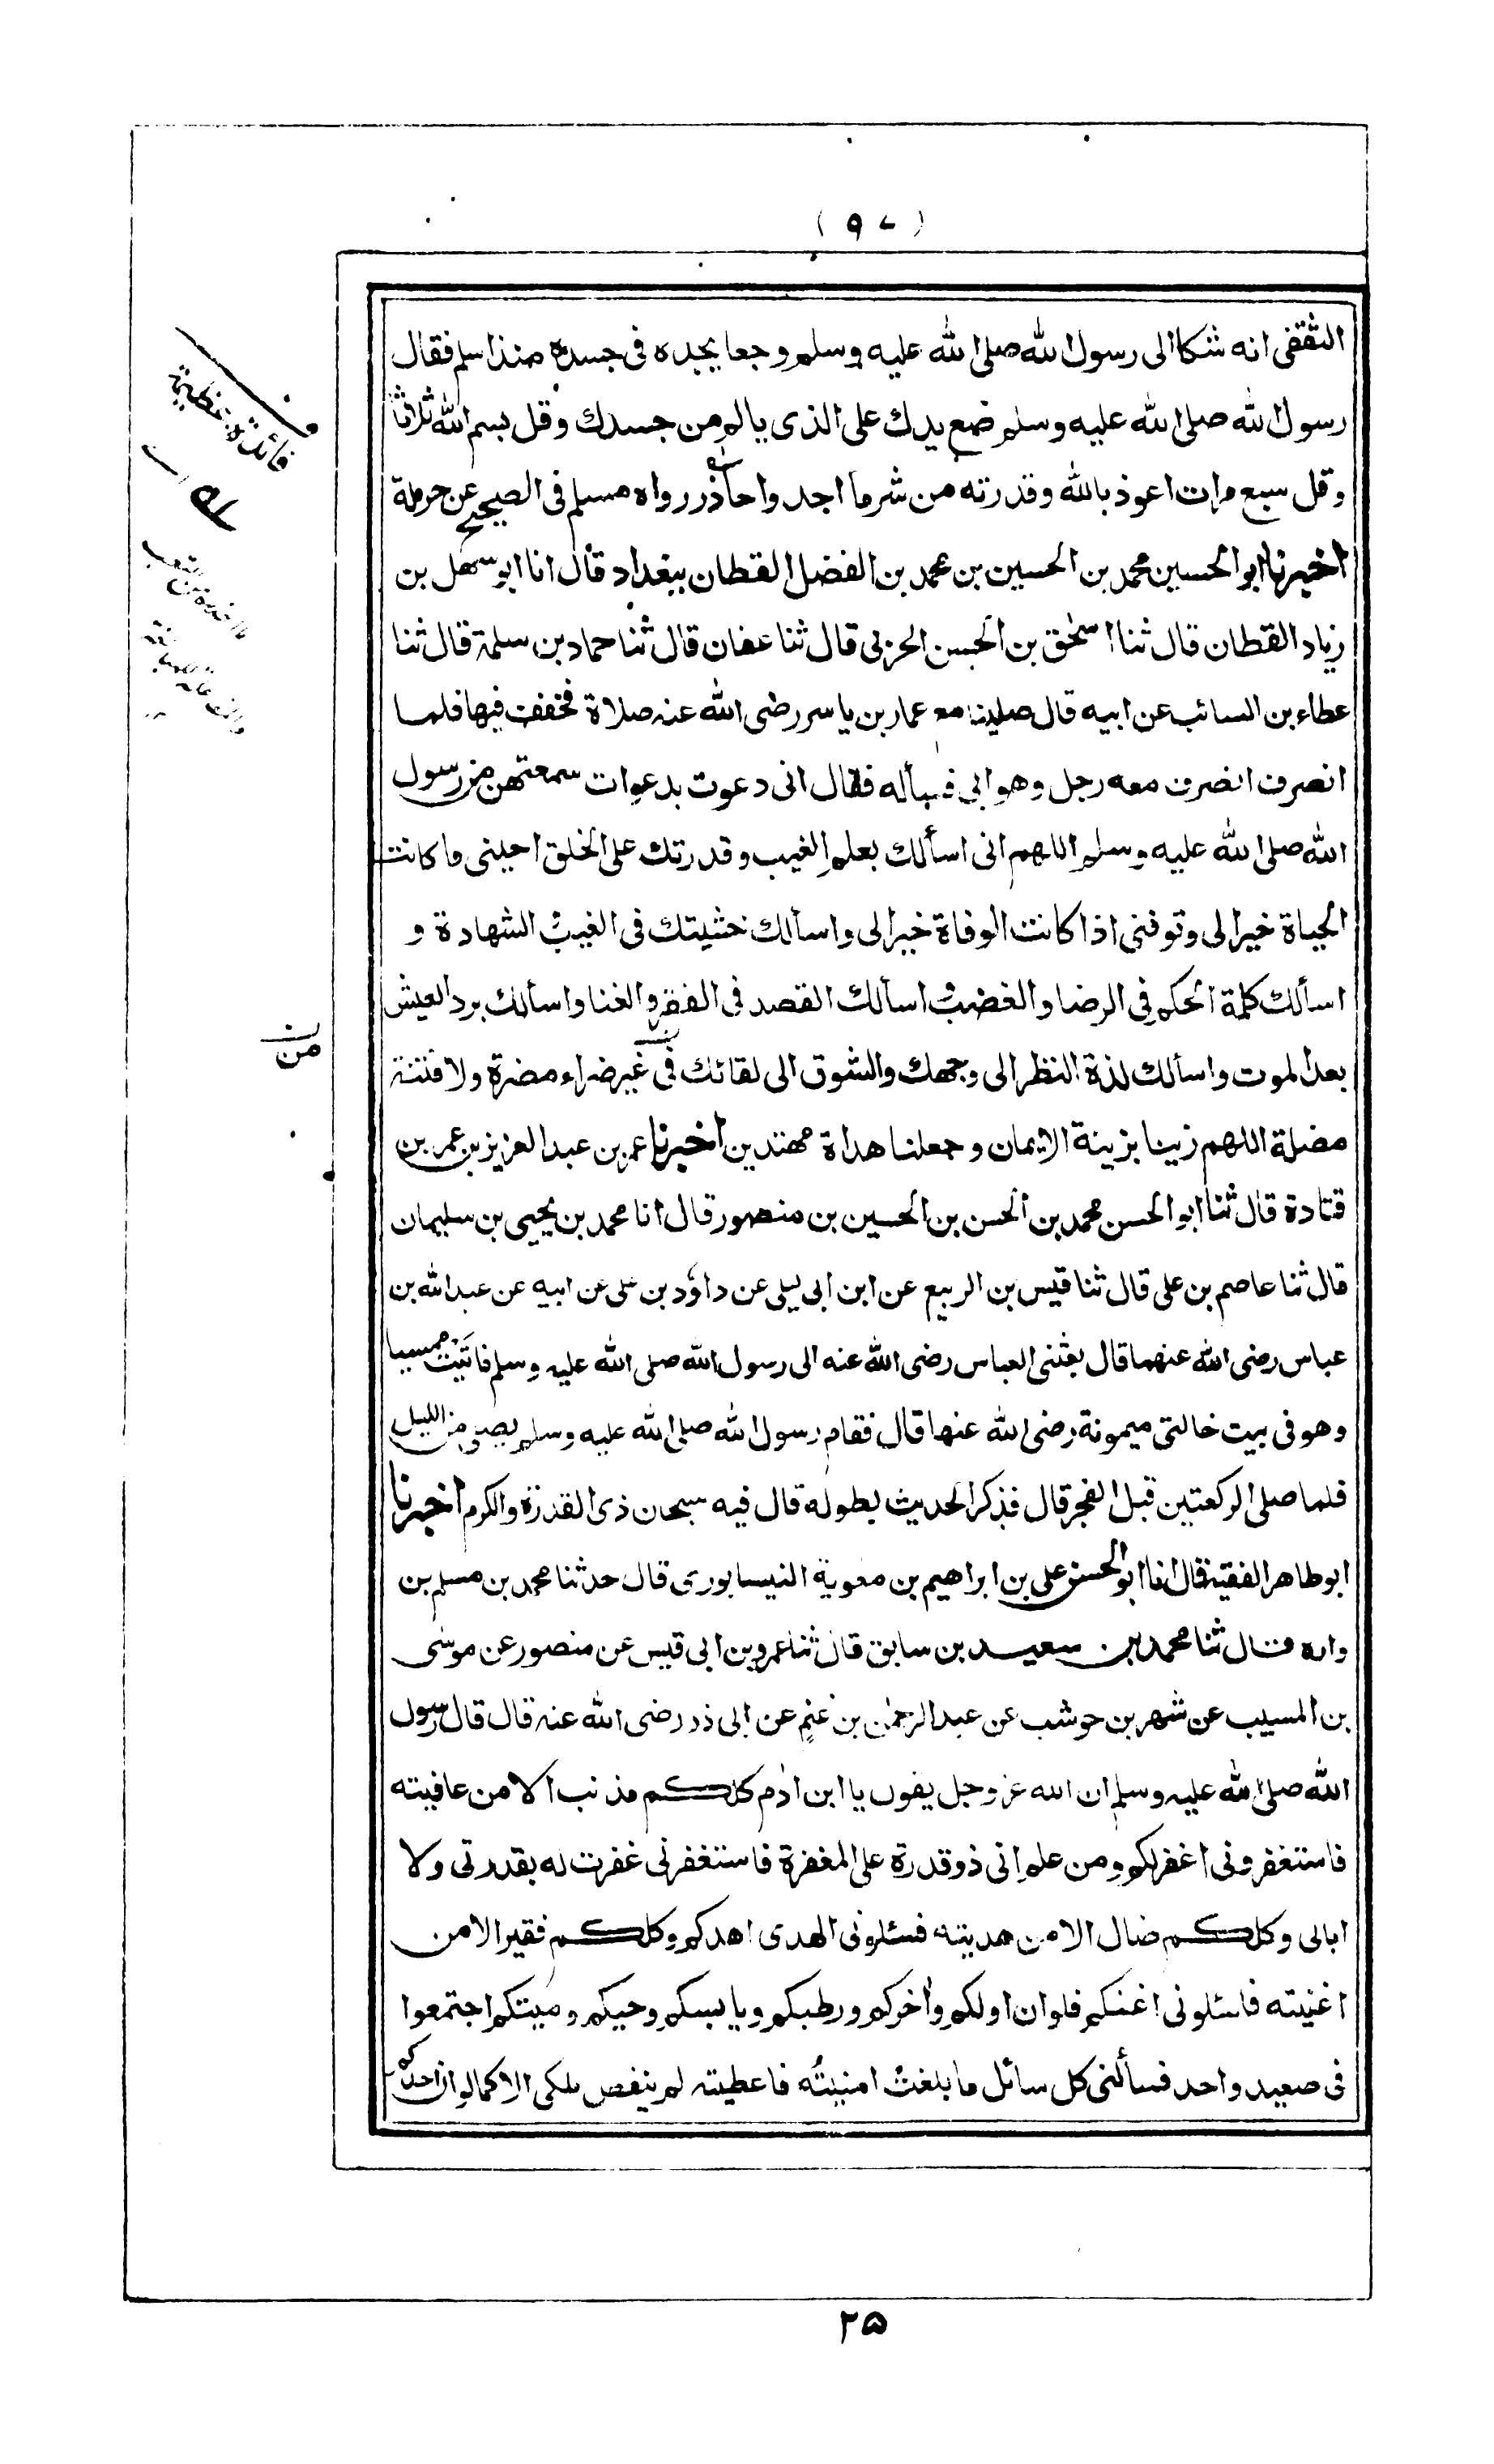 (٩٧)
الثقفى انه شكا الى رسول الله صلى الله عليه وسلم وجعا يجده فى جسده منذ اسلم فقال
رسول الله صلى الله عليه وسلم ضع يدك على الذى يالم من جسدك وقل بسم الله ثلاثا
وقل سبع مرات اعوذ بالله وقدرته من شر ما اجد واحاذر رواه مسلم فى الصحيح عن حرملة
اخبرنا ابو الحسين محمد بن الحسين بن محمد بن الفضل القطان ببغداد قال انا ابو سهل بن
زياد القطان قال ثنا اسحق بن الحسن الحربى قال ثنا عفان قال ثنا حماد بن سلمة قال ثنا
عطاء بن السائب عن ابيه قال صلينا مع عمار بن ياسر رضى الله عنه صلاة فخففت فيها فلما
انصرف انصرف معه رجل وهو ابى فسأله فقال انى دعوت بدعوات سمعتهن من رسول
الله صلى الله عليه وسلم اللهم انى اسألك بعلم الغيب وقدرتك على الخلق احينى ما كانت
الحياة خيرا لى وتوفنى اذا كانت الوفاة خيرا لى واسألك خشيتك فى الغيب والشهادة و
اسألك كلمة الحكم فى الرضا والغضب واسألك القصد فى الفقر والغنا واسألك برد العيش
بعد الموت واسألك لذة النظر الى وجهك والشوق الى لقائك فى غير ضراء مضرة ولا فتنة
من
مضلة اللهم زينا بزينة الايمان وجعلنا هداة مهتدين اخبرنا عمر بن عبد العزيز بن عمر بن
قتادة قال ثنا ابو الحسن محمد بن الحسن بن الحسين بن منصور قال انا محمد بن يحيى بن سليمان
قال ثنا عاصم بن على قال ثنا قيس بن الربيع عن ابن ابى ليلى عن داؤد بن على عن ابيه عن عبد الله بن
عباس رضى الله عنهما قال بعثنى العباس رضى الله عنه الى رسول الله صلى الله عليه وسلم فاتيت ممسيا
وهو فى بيت خالتى ميمونة رضى الله عنها قال فقام رسول الله صلى الله عليه وسلم يصلى من الليل
فلما صلى الركعتين قبل الفجر قال فذكر الحديث بطوله قال فيه سبحان ذى القدرة والكرم اخبرنا
ابو طاهر الفقيه قال انا ابو الحسن على بن ابراهيم بن معوية النيسابورى قال حدثنا محمد بن مسلم بن
واره قال ثنا محمد بن سعيد بن سابق قال ثنا عمرو بن ابى قيس عن منصور عن موسى
بن المسيب عن شهر بن حوشب عن عبد الرحمن بن غنم عن ابى ذر رضى الله عنه قال قال رسول
الله صلى الله عليه وسلم ان الله عز وجل يقول يا ابن ادم كلكم مذنب الا من عافيته
فاستغفرونى اغفر لكم ومن علم انى ذو قدرة على المغفرة فاستغفرنى غفرت له بقدرتى ولا
ابالى وكلكم ضال الا من هديته فسئلونى الهدى اهدكم وكلكم فقير الا من
اغنيته فاسئلونى اغنكم فلو ان اولكم واخركم ورطبكم ويابسكم وحيكم وميتكم اجتمعوا
فى صعيد واحد فسألنى كل سائل ما بلغت امنيته فاعطيته لم ينقص ملكى الا كما لو ان احدكم
٢٥